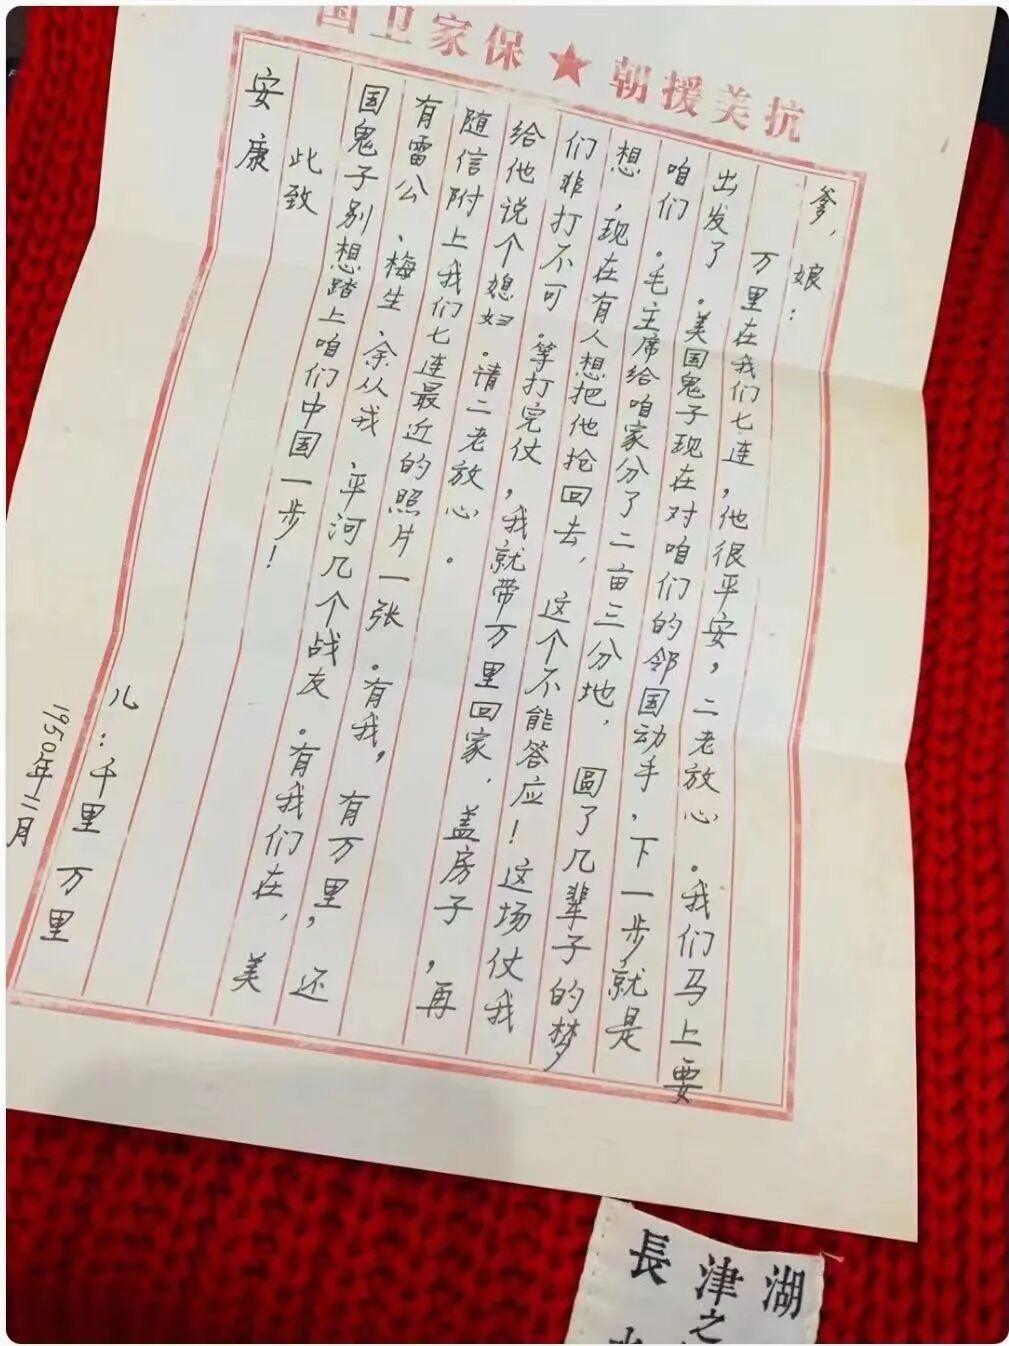 抗美援朝★保家卫国
爹，娘：
万里在我们七连，他很平安，二老放心。我们马上要
出发了。美国鬼子现在对咱们的邻国动手，下一步就是
咱们。毛主席给咱家分了二亩三分地，圆了几辈子的梦
想，现在有人想把他抢回去，这个不能答应！这场仗我
们非打不可.等打完仗，我就带万里回家.盖房子，再
给他说个媳妇.请二老放心。
随信附上我们七连最近的照片一张.有我，有万里，还
有雷公、梅生、余从戎、平河几个战友.有我们在，美
国鬼子别想踏上咱们中国一步！
此致
安康
儿：千里 万里
1950年11月
長津湖
之